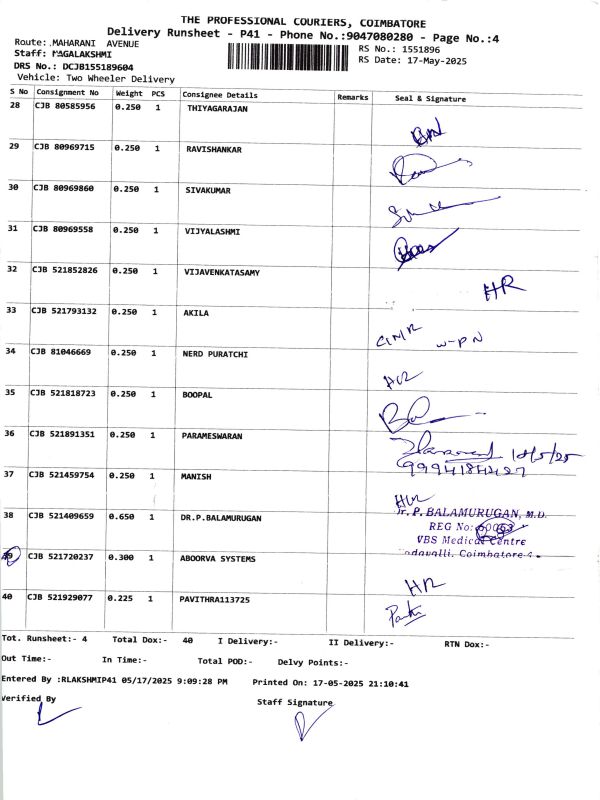 THE PROFESSIONAL COURIERS, COIMBATORE
Delivery Runsheet - P41 - Phone No.:9047080280 - Page No.:4
Route: MAHARANI AVENUE
Staff: MAGALAKSHMI
RS No.: 1551896
DRS No.: DCJB155189604
RS Date: 17-May-2025
Vehicle: Two Wheeler Delivery
S No Consignment No Weight PCS Consignee Details Remarks Seal & Signature
28 CJB 80585956 0.250 1 THIYAGARAJAN
29 CJB 80969715 0.250 1 RAVISHANKAR
30 CJB 80969860 0.250 1 SIVAKUMAR
31 CJB 80969558 0.250 1 VIJYALASHMI
32 CJB 521852826 0.250 1 VIJAVENKATASAMY HR
33 CJB 521793132 0.250 1 AKILA W-PN
34 CJB 81046669 0.250 1 NERD PURATCHI
35 CJB 521818723 0.250 1 BOOPAL
36 CJB 521891351 0.250 1 PARAMESWARAN
37 CJB 521459754 0.250 1 MANISH
38 CJB 521409659 0.650 1 DR.P.BALAMURUGAN
Dr. P. BALAMURUGAN, M.D.
REG No:
VBS Medical Centre
Coimbatore-4.
39 CJB 521720237 0.300 1 ABOORVA SYSTEMS HR
40 CJB 521929077 0.225 1 PAVITHRA113725
Tot. Runsheet:- 4 Total Dox:- 40 I Delivery:- II Delivery:- RTN Dox:-
Out Time:- In Time:- Total POD:- Delvy Points:-
Entered By :RLAKSHMIP41 05/17/2025 9:09:28 PM Printed On: 17-05-2025 21:10:41
Verified By Staff Signature